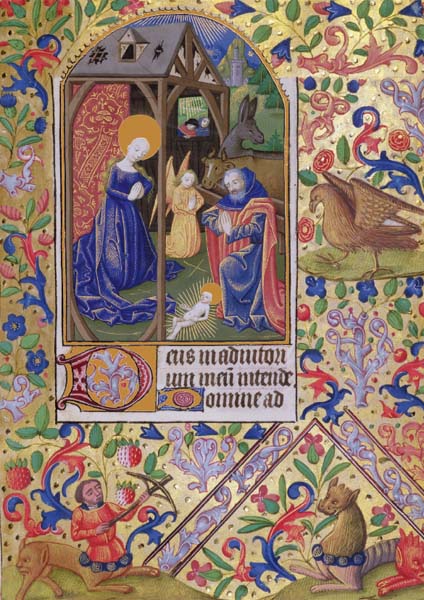 Deus in adiutori
um meū intende
Domine ad